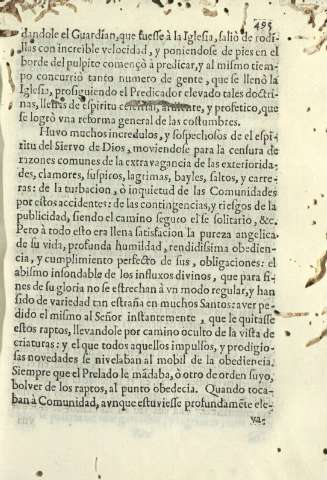 495
dandole el Guardian, que fuesse à la Iglesia, saliò de rodi-
llas con increible velocidad, y poniendose de pies en el
borde del pulpito començò à predicar, y al mismo tiem-
po concurriò tanto numero de gente, que se llenò la
Iglesia, prosiguiendo el Predicador elevado tales doctri-
nas, llenas de espiritu celestial, y profetico, que
se logrò vna reforma general de las costumbres.
Huvo muchos incredulos, y sospechosos de el espi-
ritu del Siervo de Dios, moviendose para la censura de
razones comunes de la extravagancia de las exteriorida-
des, clamores, suspiros, lagrimas, bayles, saltos, y carre-
ras: de la turbacion, ò inquietud de las Comunidades
por estos accidentes: de las contingencias, y riesgos de la
publicidad, siendo el camino seguro el se solitario, &c.
Pero à todo esto era llena satisfacion la pureza angelica
de su vida, profunda humildad, rendidissima obedien-
cia, y cumplimiento perfecto de sus, obligaciones: el
abismo insondable de los influxos divinos, que para fi-
nes de su gloria no se estrechan à vn modo regular, y han
sido de variedad tan estraña en muchos Santos: aver pe-
dido el mismo al Señor instantemente, que le quitasse
estos raptos, llevandole por camino oculto de la vista de
criaturas: y el que todos aquellos impulsos, y prodigio-
sas novedades se nivelaban al mobil de la obediencia.
Siempre que el Prelado le mãdaba, ò otro de orden suyo,
bolver de los raptos, al punto obedecia. Quando toca-
ban à Comunidad, avnque estuviesse profundamẽte ele-
va-